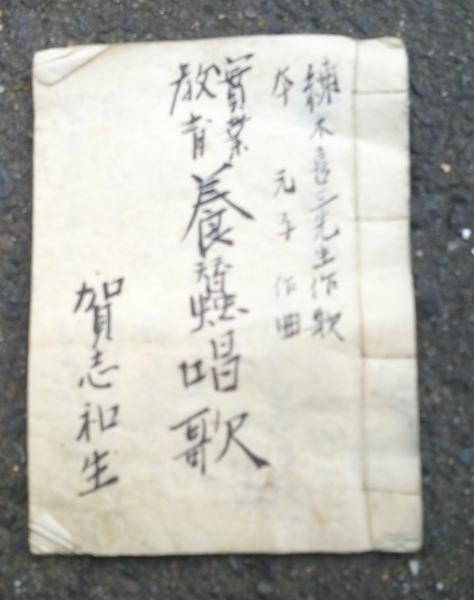 練木喜三先生作歌
本元子作曲
實業
教育
養蠶唱歌
賀志和生